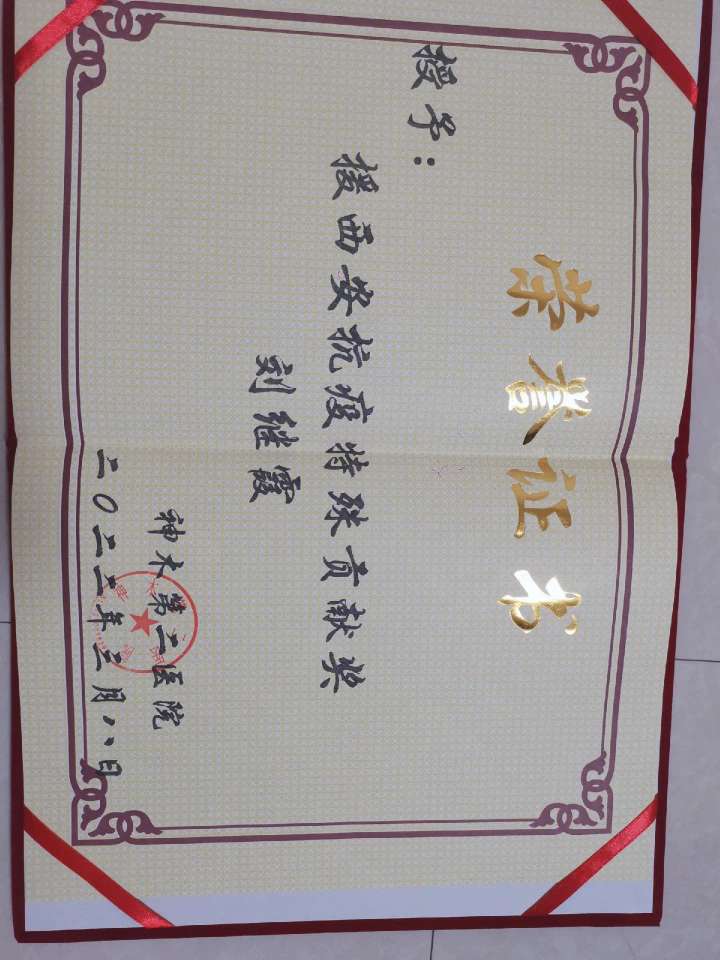 荣誉证书
授予：
援西安抗疫特殊贡献奖
刘继霞
神木第二医院
二〇二二年三月八日